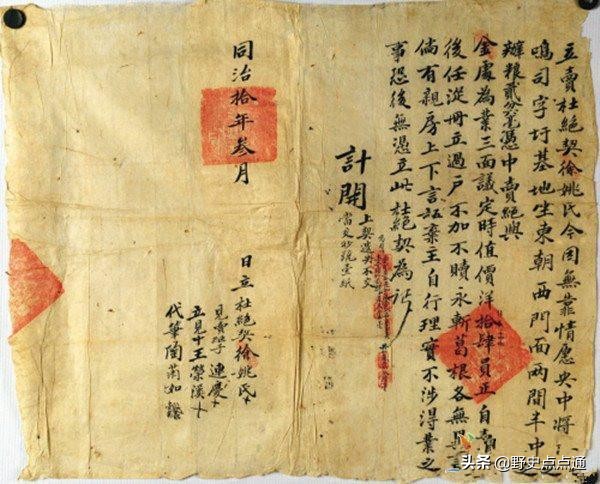 立賣杜絕契徐姚氏今因無靠情愿央中將
鳴司字圩基地坐東朝西門面兩間半中
辦粮貳分毫憑中賣絕與
金處為業三面議定時值價洋拾肆員正自賣
後任從冊立過戶不加不贖永斬葛根各無異言
倘有親房上下言話棄主自行理實不涉得業之
事恐後無憑立此杜絕契為
計開
上契遺失不交
當交抄號壹紙
同治拾年叁月
日立杜絕契徐姚氏十
見賣 連慶十
見中王榮漢十
代筆陶蘭如
头条 @野史点点通